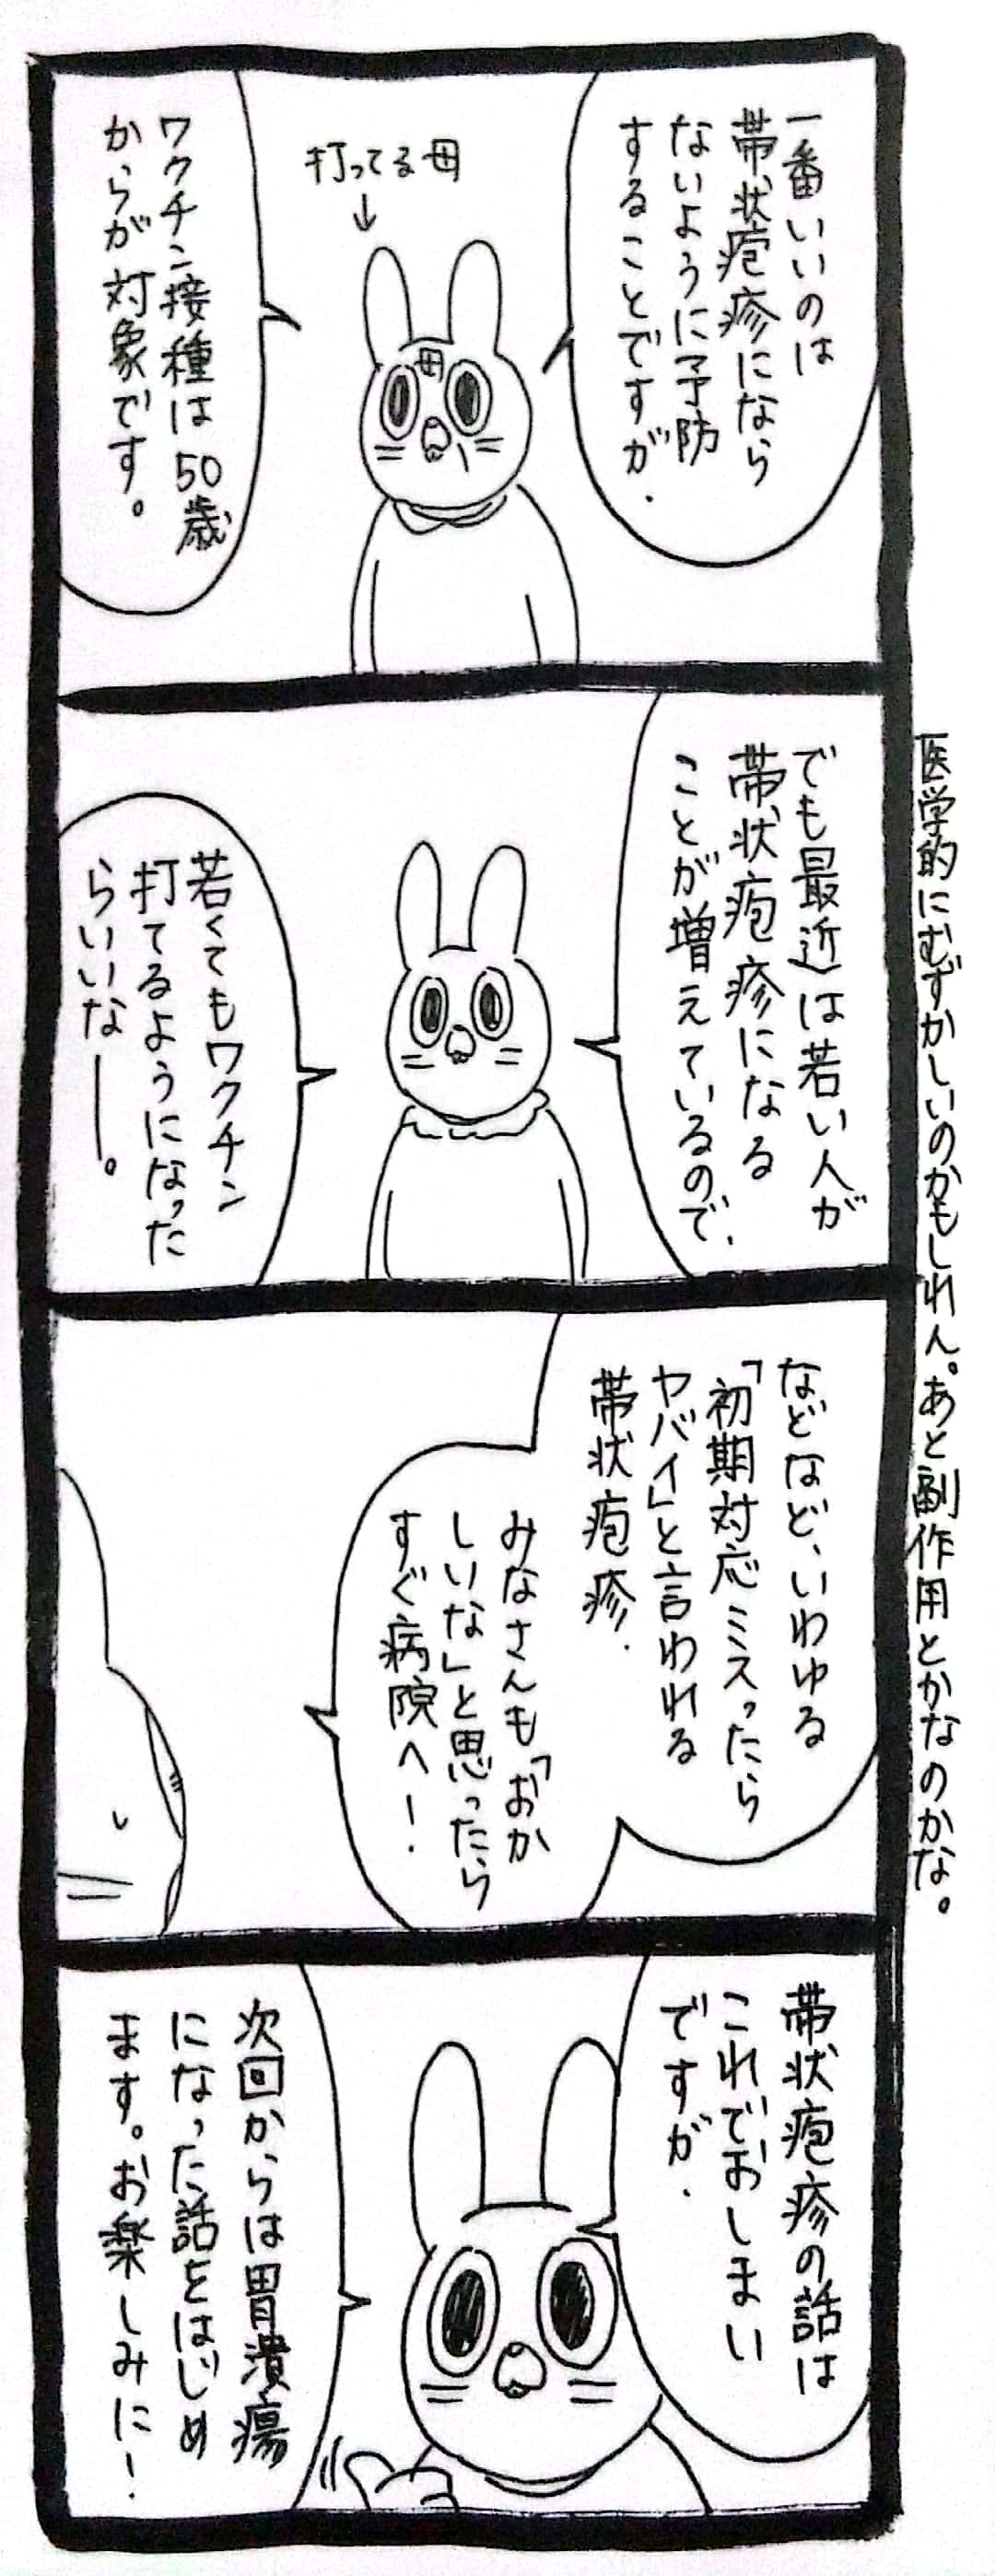 一番いいのは
帯状疱疹になら
ないように予防
することですが、
打ってる母
↓
母
ワクチン接種は50歳
からが対象です。
でも最近は若い人が
帯状疱疹になる
ことが増えているので、
若くてもワクチン
打てるようになった
らいいなー。
医学的にむずかしいのかもしれん。あと副作用とかなのかな。
などなど、いわゆる
「初期対応ミスったら
ヤバイ」と言われる
帯状疱疹、
みなさんも「おか
しいな」と思ったら
すぐ病院へ！
帯状疱疹の話は
これでおしまい
ですが、
次回からは胃潰瘍
になった話をはじめ
ます。お楽しみに！